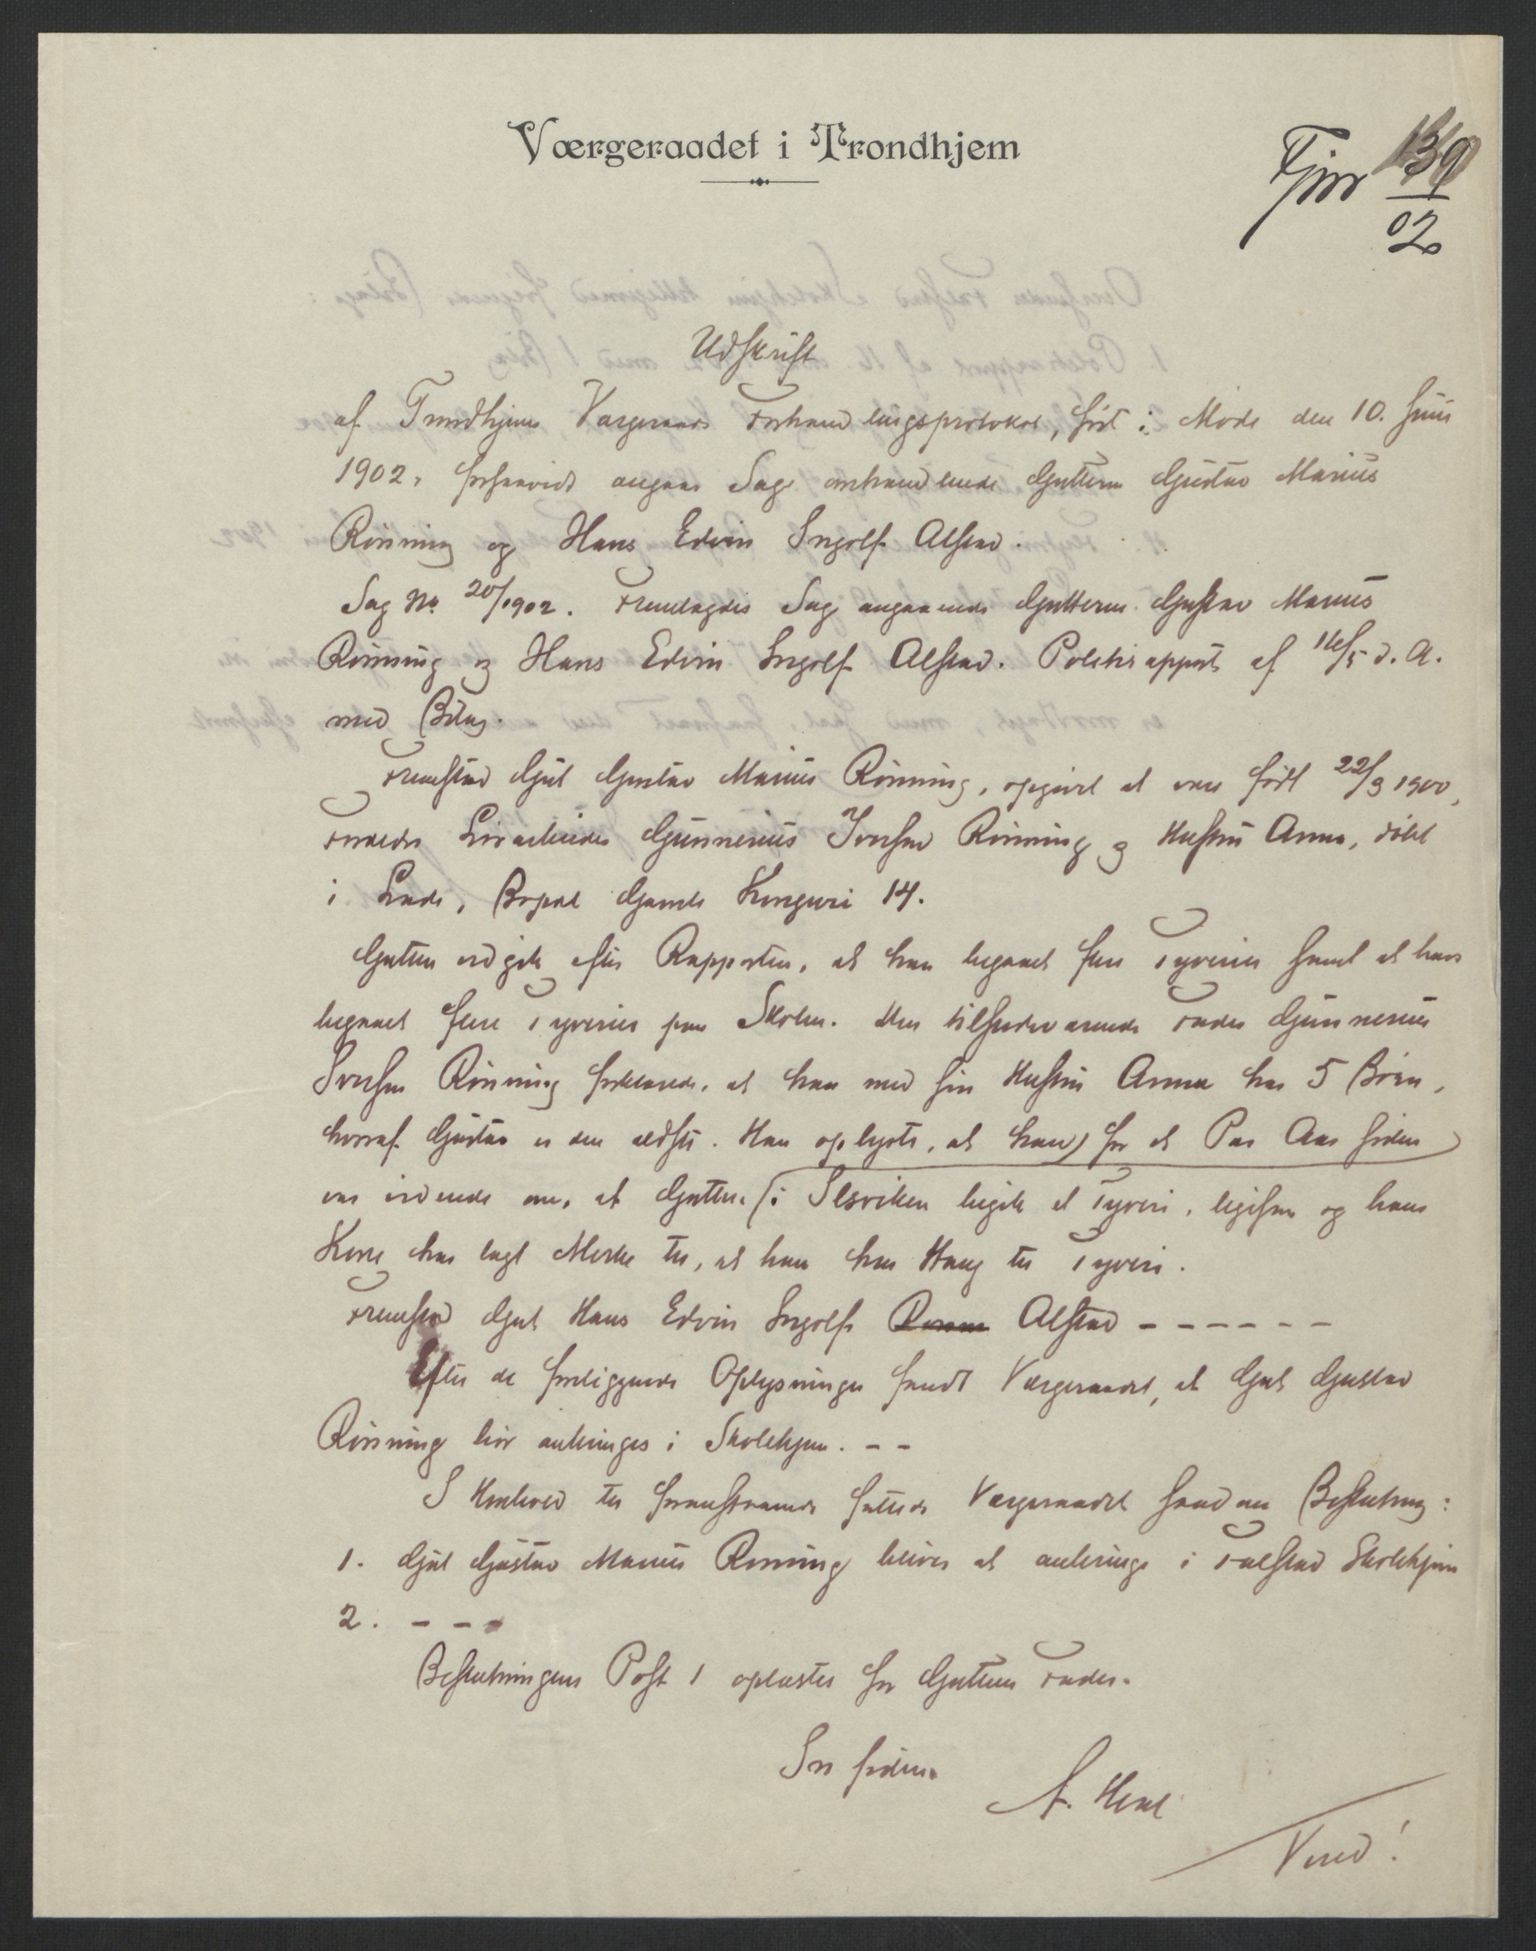 Værgeraadet i Trondhjem
Fjnr 139
02
Udskrift
af Trondhjems Værgeraads Forhandlingsprotokol, ført i Møde den 10. Juni
1902, forsaavidt angaar Sag omhandlende Gutterne Gustav Marius
Rønning og Hans Edvin Ingolf Alstad.
Sag No. 20/1902. Fremlagdes Sag angaaende Gutterne Gustav Marius
Rønning og Hans Edvin Ingolf Alstad. Politirapport af 16/5 d. A.
med Bilag.
Fremstod Gut Gustav Marius Rønning, opgivet at være født 22/3 1900,
Forældre Løsarbeider Gunnerius Iversen Rønning og Hustru Anna, døbt
i Lade, Bopæl Gamle Kongevei 14.
Gutten vedgik efter Rapporten, at han begaaet flere Tyverier samt at have
begaaet flere Tyverier paa Skolen. Den tilstedeværende Fader Gunnerius
Iversen Rønning forklarede, at han med sin Hustru Anna har 5 Børn,
hvoraf Gustav er den ældste. Han oplyste, at han) for et Par Aar siden
var vidende om, at Gutten (i Ilsviken begik et Tyveri, ligesom og hans
Kone har lagt Merke til, at han har Hang til Tyveri.
Fremstod Gut Hans Edvin Ingolf Alstad - - - - - -
Efter de foreliggende Oplysninger fandt Værgeraadet, at Gut Gustav
Rønning bør anbringes i Skolehjem. - -
I Henhold til foranstaaende fattede Værgeraadet saadan Beslutning:
1. Gut Gustav Marius Rønning bliver at anbringe i Falstad Skolehjem
2. - - -
Beslutningens Post 1 oplæstes for Guttens Fader.
In fidem
A. Hoel
Vend!